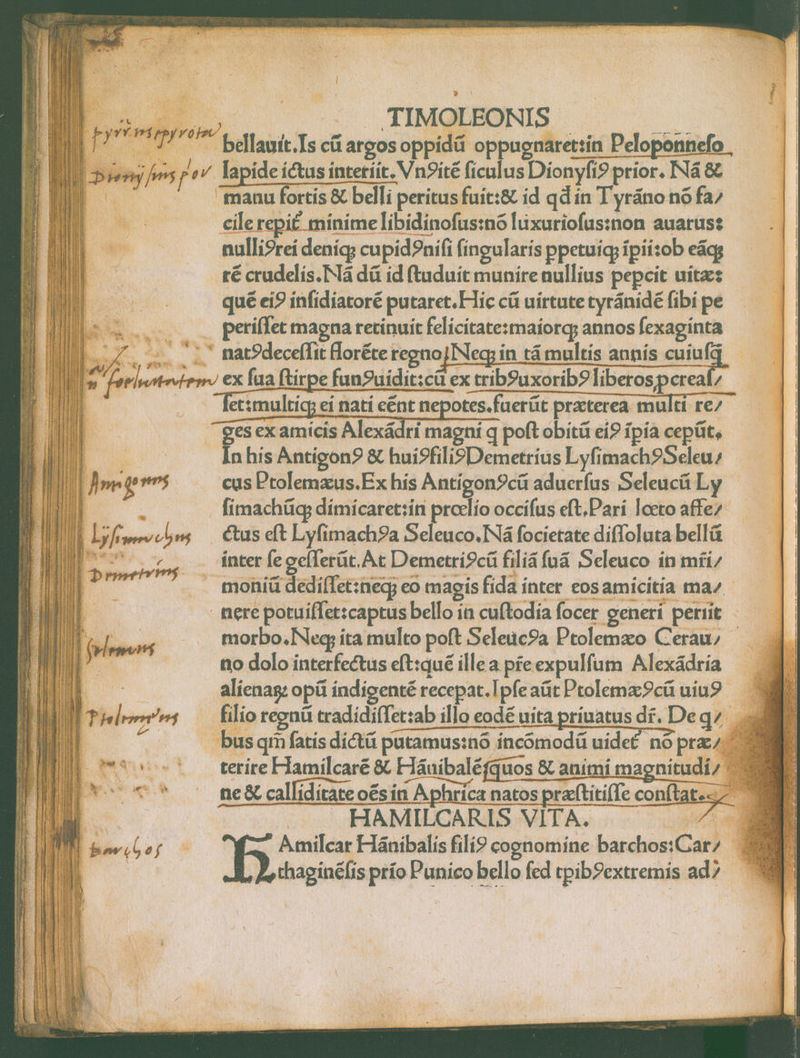 TIMOLEONIS
bellauit.Is cũ argos oppidũ oppugnaret:in Peloponneſo
lapide ictus interiit.Vnꝰité ſiculus Dionyſiꝰ prior. Nã &
manu fortis & belli peritus fuit:& id qđ in Tyráno nó fa/
cile repit᷑ minime libidinoſus:nó luxurioſus:non auarus:
nulliꝰrei deniqꝫ cupidꝰniſi ſingularis ppetuiqꝫ ípii:ob eãqꝫ
ré crudelis.Nã dũ id ſtuduit munire nullius pepcit uitæ:
qué eiꝰ inſidiatoré putaret.Hic cũ uirtute tyránidé ſibi pe
periſſet magna retinuit felicitate:maiorqꝫ annos ſexaginta
natꝰdeceſſit floréte regno.Neqꝫ in tã multis annis cuiuſq̃
ex ſua ſtirpe funꝰuidit:cũ ex tribꝰuxoribꝰ liberos ꝓcreaſ/
ſet:multiqꝫ ei nati eént nepotes.fuerũt præterea multi re/
ges ex amicis Alexãdri magni q poſt obitũ eiꝰ ípia cepũt.
In his Antigonꝰ & huiꝰfiliꝰDemetrius LyſimachꝰSeleu/
cus Ptolemæus.Ex his Antigonꝰcũ aduerſus Seleucũ Ly
ſimachũqꝫ dimicaret:in prœlio occiſus eſt.Pari lœto affe/
ctus eſt Lyſimachꝰa Seleuco.Nã ſocietate diſſoluta bellũ
inter ſe geſſerũt.At Demetriꝰcũ filiã ſuã Seleuco in mr̃i/
moniũ dediſſet:neqꝫ eo magis fida inter eos amicitia ma/
nere potuiſſet:captus bello in cuſtodia ſocer generi periit
morbo.Neqꝫ ita multo poſt Seleucꝰa Ptolemæo Cerau/
no dolo interfectus eſt:qué ille a pr̃e expulſum Alexãdria
alienaꝝ opũ indigenté recepat.Ipſe aũt Ptolemæꝰcũ uiuꝰ
filio regnũ tradidiſſet:ab illo eodé uita priuatus dr̃. De q/
bus qm̃ ſatis dictũ putamus:nó incómodũ uidet᷑ nó præ/
terire Hamilcaré & Hãnibalé:quos & animi magnitudi/
ne & calliditate oés in Aphrica natos præſtitiſſe conſtat.
HAMILCARIS VITA.
HAmilcar Hánibalis filiꝰ cognomine barchos:Car/
thaginéſis prío Punico bello ſed tpibꝰextremis ad/
Antigonus
Lysimachus
Demetrius
Seleucus
Ptolemęus
barchos